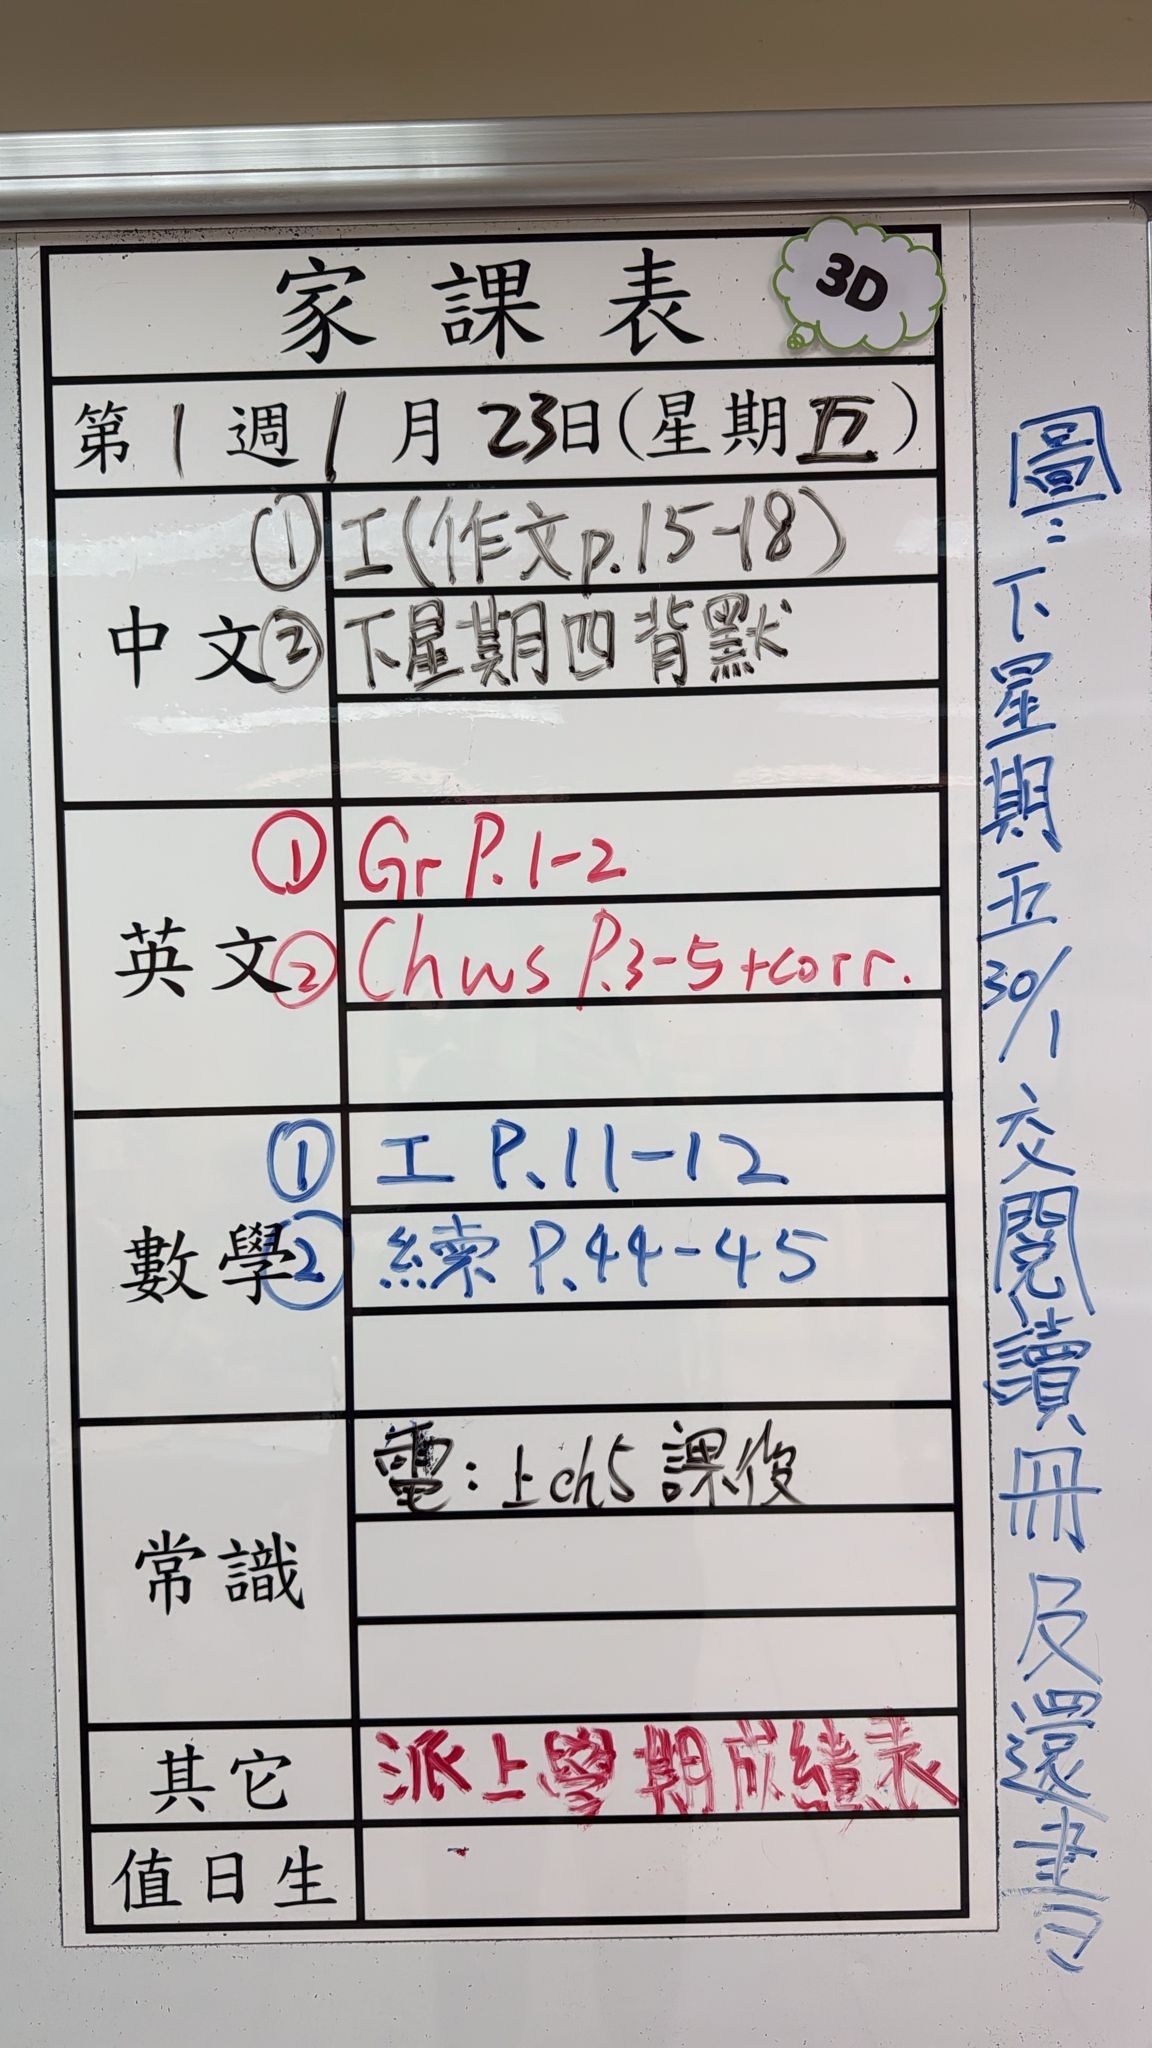 家課表
3D
第1週1月23日(星期五)
中文
① 工(作文p.15-18)
② 下星期四背默
英文
① Gr P.1-2
② Ch ws P.3-5+corr.
數學
① 工 P.11-12
② P.44-45
常識
電:上ch5課後
其它
派上學期成績表
值日生
圖:下星期五30/1交閱讀冊及還書